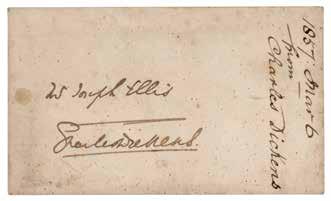 Mr Joseph Ellis
Charles Dickens.
1857 Mar 6
from
Charles Dickens